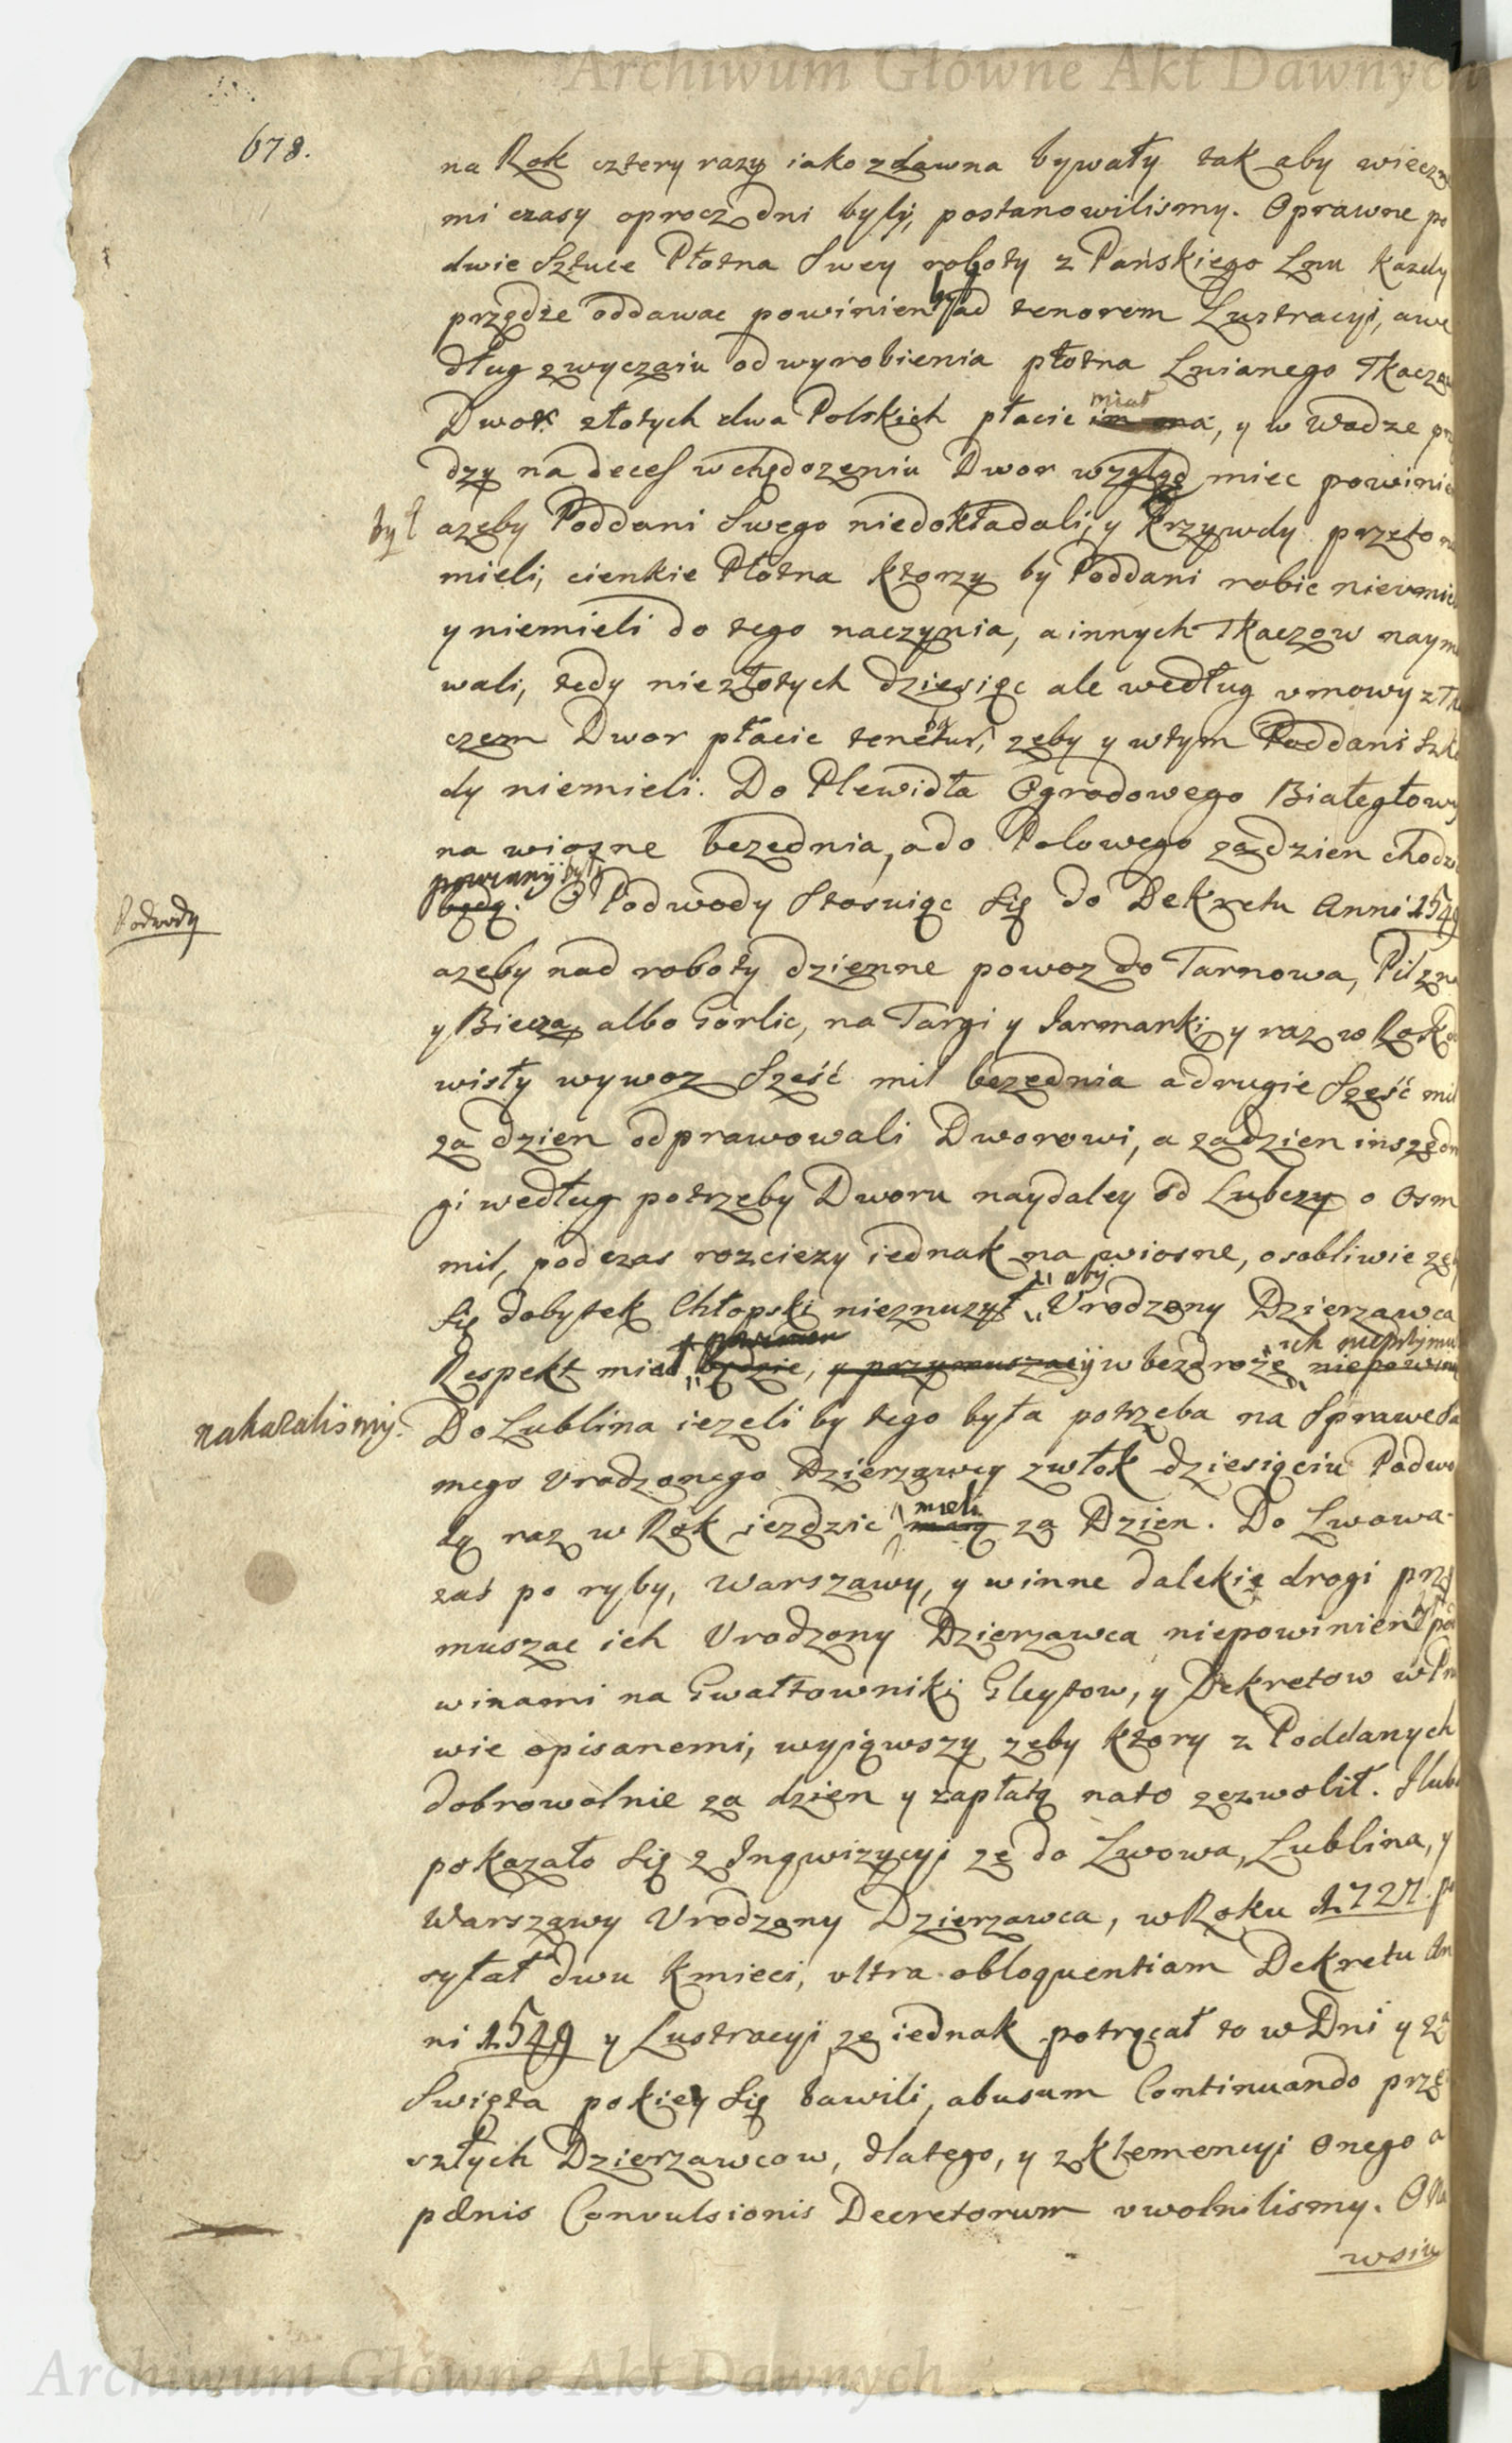 Archiwum Główne Akt Dawnych
678.
na Rok cztery razy iako zdawna bywały tak aby wieczne
mi czasy oprocz dni były, postanowilismy. Oprawne po
dwie Sztuce Płotna Swey roboty z Pańskiego Lnu kazdy
przędze oddawac powinien był ad tenorem Lustracyi, a we
dług zwyczaiu od wyrobienia płotna Lnianego Tkaczowi
Dwor złotych dwa Polskich płacic miał im ma, y w Wadze prę
dzy na deces w chędozeniu Dwor wzgląd miec powinien
był azeby Poddani Swego niedokładali, y Krzywdy przeto nie
mieli, cienkie Płotna ktorzy by Poddani robic nieumieli
y niemieli do tego naczynia, a innych Tkaczow naymo
wali, tedy nie złotych dziesięc ale według umowy z Tka
czem Dwor płacic tenetur, zeby y wtym Poddani Szko
dy niemieli. Do Plewidła Ogrodowego Białegłowy
na wiosne bezednia, a do Polowego zadzien chodzic
powinny były
będą. O Podwody Stosuiąc Się do Dekretu Anni 1549
Podwody
azeby nad roboty dzienne powoz do Tarnowa, Pilzna
y Biecza, albo Gorlic, na Targi y Jarmarki, y raz w Rok do
wisły wywoz Sześć mil bezednia a drugie Sześć mil
za dzien odprawowali Dworowi, a zadzien inszę dro
gi według potrzeby Dworu naydaley od Lubczy o Osm
mil, podczas rozciezy iednak na wiosne, osobliwie zeby
Się dobytek Chłopski nieznuzył, aby Urodzony Dzierzawca
Respekt miał powinien będzie, y przymuszacy w bezdroze ich nieprzymu niepowinien
nakazalismy.
Do Lublina iezeli by tego była potrzeba na Sprawę Sa
mego Urodzonego Dzierzawcy zwłok dziesięciu Podwo
dę raz w Rok iezdzic mieli maią za Dzien. Do Lwowa
zaś po ryby, Warszawy, y winne dalekie drogi przy
muszac ich Urodzony Dzierzawca niepowinien był pod
winami na Gwałtowniki Gleytow, y Dekretow w Pra
wie opisanemi, wyiąwszy zeby ktory z Poddanych
dobrowolnie za dzien y zapłatę nato zezwolił. Jlubo
pokazało Się z Inqwizycyi zę do Lwowa, Lublina, y
Warszawy Urodzony Dzierzawca, w Roku 1727. po
syłał dwu Kmieci, ultra obloquentiam Dekretu An
ni 1549 y Lustracyi, ze iednak potrącał to w Dni y za
Swięta pokiey Się bawili, abusum Continuando prze
szłych Dzierzawcow, dlatego, y z klemencyi Onego a
pœnis Convulsionis Decretorum uwolnilismy. Ona
wsiu
Archiwum Główne Akt Dawnych